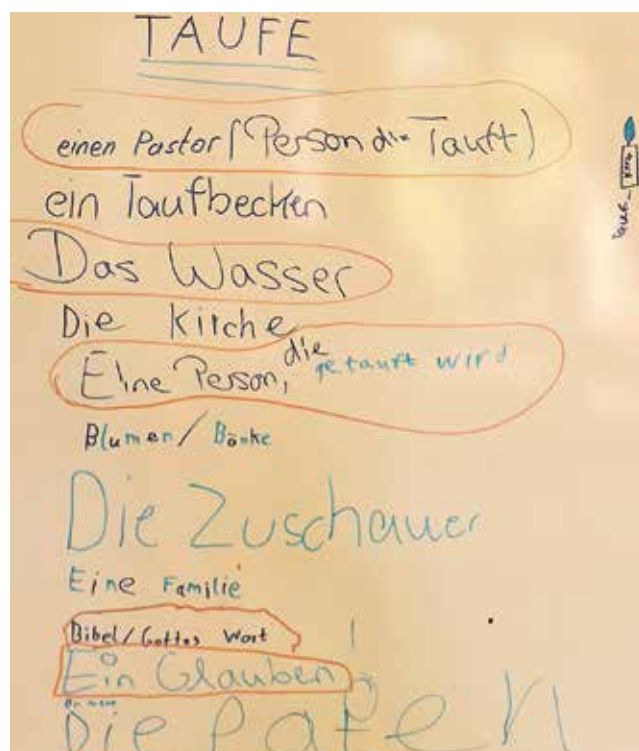 TAUFE
einen Pastor (Person die Tauft)
ein Taufbecken
Das Wasser
Die Kirche
Eine Person, die getauft wird
Blumen/Bänke
Die Zuschauer
Eine Familie
Bibel/Gottes Wort
Ein Glauben
Die Paten